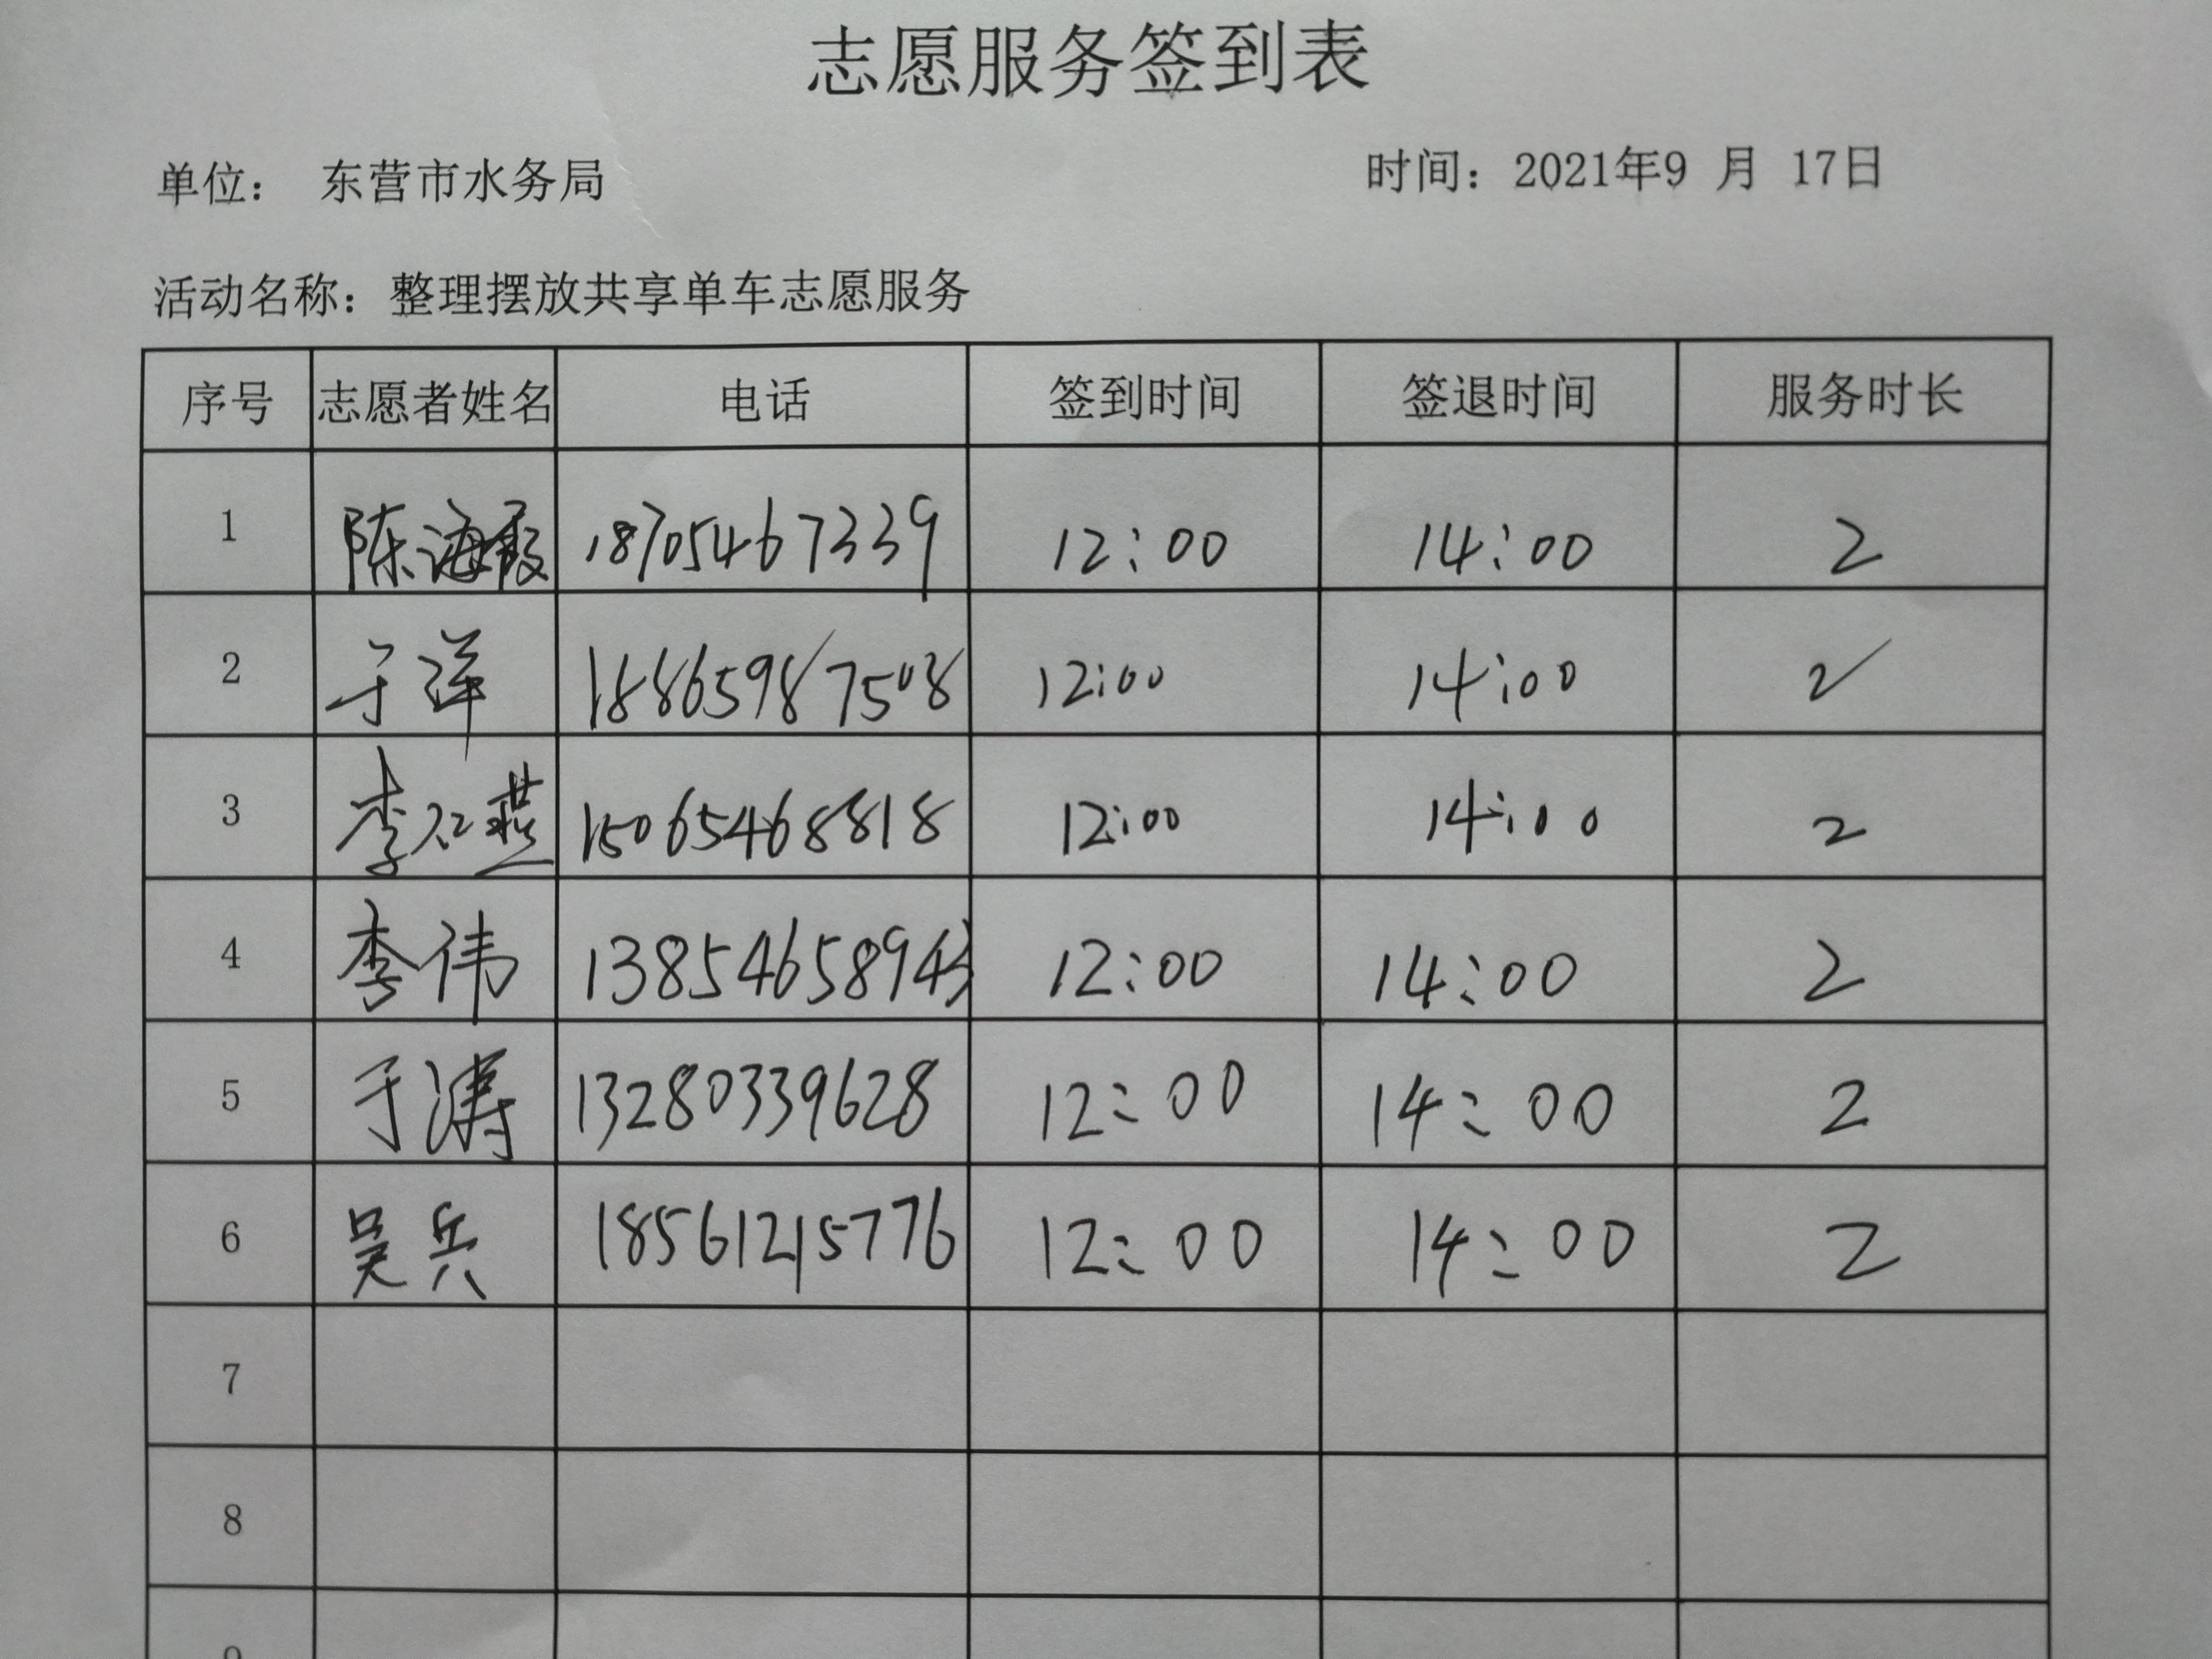 志愿服务签到表
单位： 东营市水务局 时间：2021年9 月 17日
活动名称：整理摆放共享单车志愿服务
序号 志愿者姓名 电话 签到时间 签退时间 服务时长
1 陈海霞 18705467339 12:00 14:00 2
2 于洋 18865987508 12:00 14:00 2
3 李红燕 15065468818 12:00 14:00 2
4 李伟 13854658943 12:00 14:00 2
5 于涛 13280339628 12:00 14:00 2
6 吴兵 18561215776 12:00 14:00 2
7
8